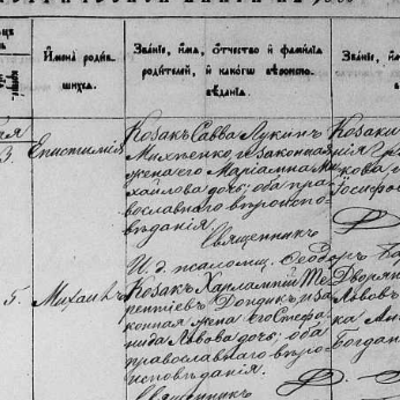 Имена родив-
шихся.
Званіе, имя, отчество и фамилія
родителей, и какогѡ вѣроиспо-
вѣданія.
Званіе, им
3.
Епистимія
Козакъ Савва Лукинъ
и законная
жена его Маріамна Ми-
хайлова дочь; оба пра-
вославнаго вѣроиспо-
вѣданія.
Священникъ
И. д. псаломщ. Ѳеодоръ
5.
Михаилъ
Козакъ Харлампій Те-
рентіевъ Дондикъ и за-
конная жена его Стефа-
нида Львова дочь; оба
православнаго вѣро-
исповѣданія.
Священникъ
Козаки
кова,
Іосифо
Дворян
Львовъ
ка Ан
Богдан